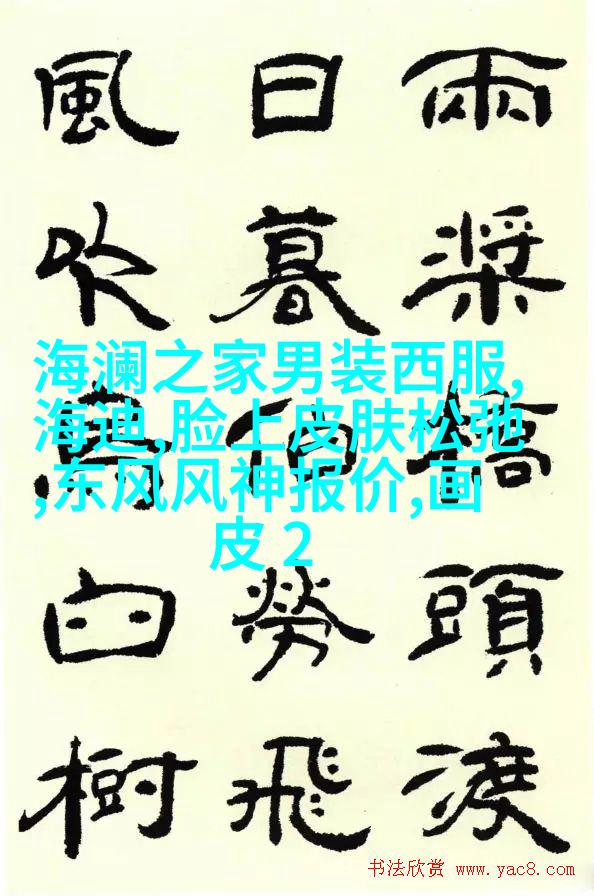 兩槳橋頭渡
日暮伯勞飛
風吹烏臼樹
海澜之家男装西服,
海迪,脸上皮肤松弛
,东风风神报价,画
皮 2
书法欣赏 www.yac8.com